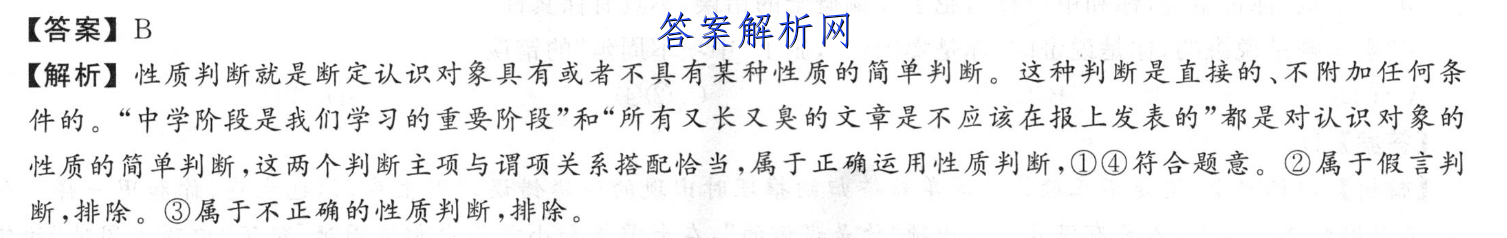 【答案】B
答案解析网
【解析】性质判断就是断定认识对象具有或者不具有某种性质的简单判断。这种判断是直接的、不附加任何条
件的。“中学阶段是我们学习的重要阶段”和“所有又长又臭的文章是不应该在报上发表的”都是对认识对象的
性质的简单判断,这两个判断主项与谓项关系搭配恰当,属于正确运用性质判断,①④符合题意。②属于假言判
断,排除。③属于不正确的性质判断,排除。